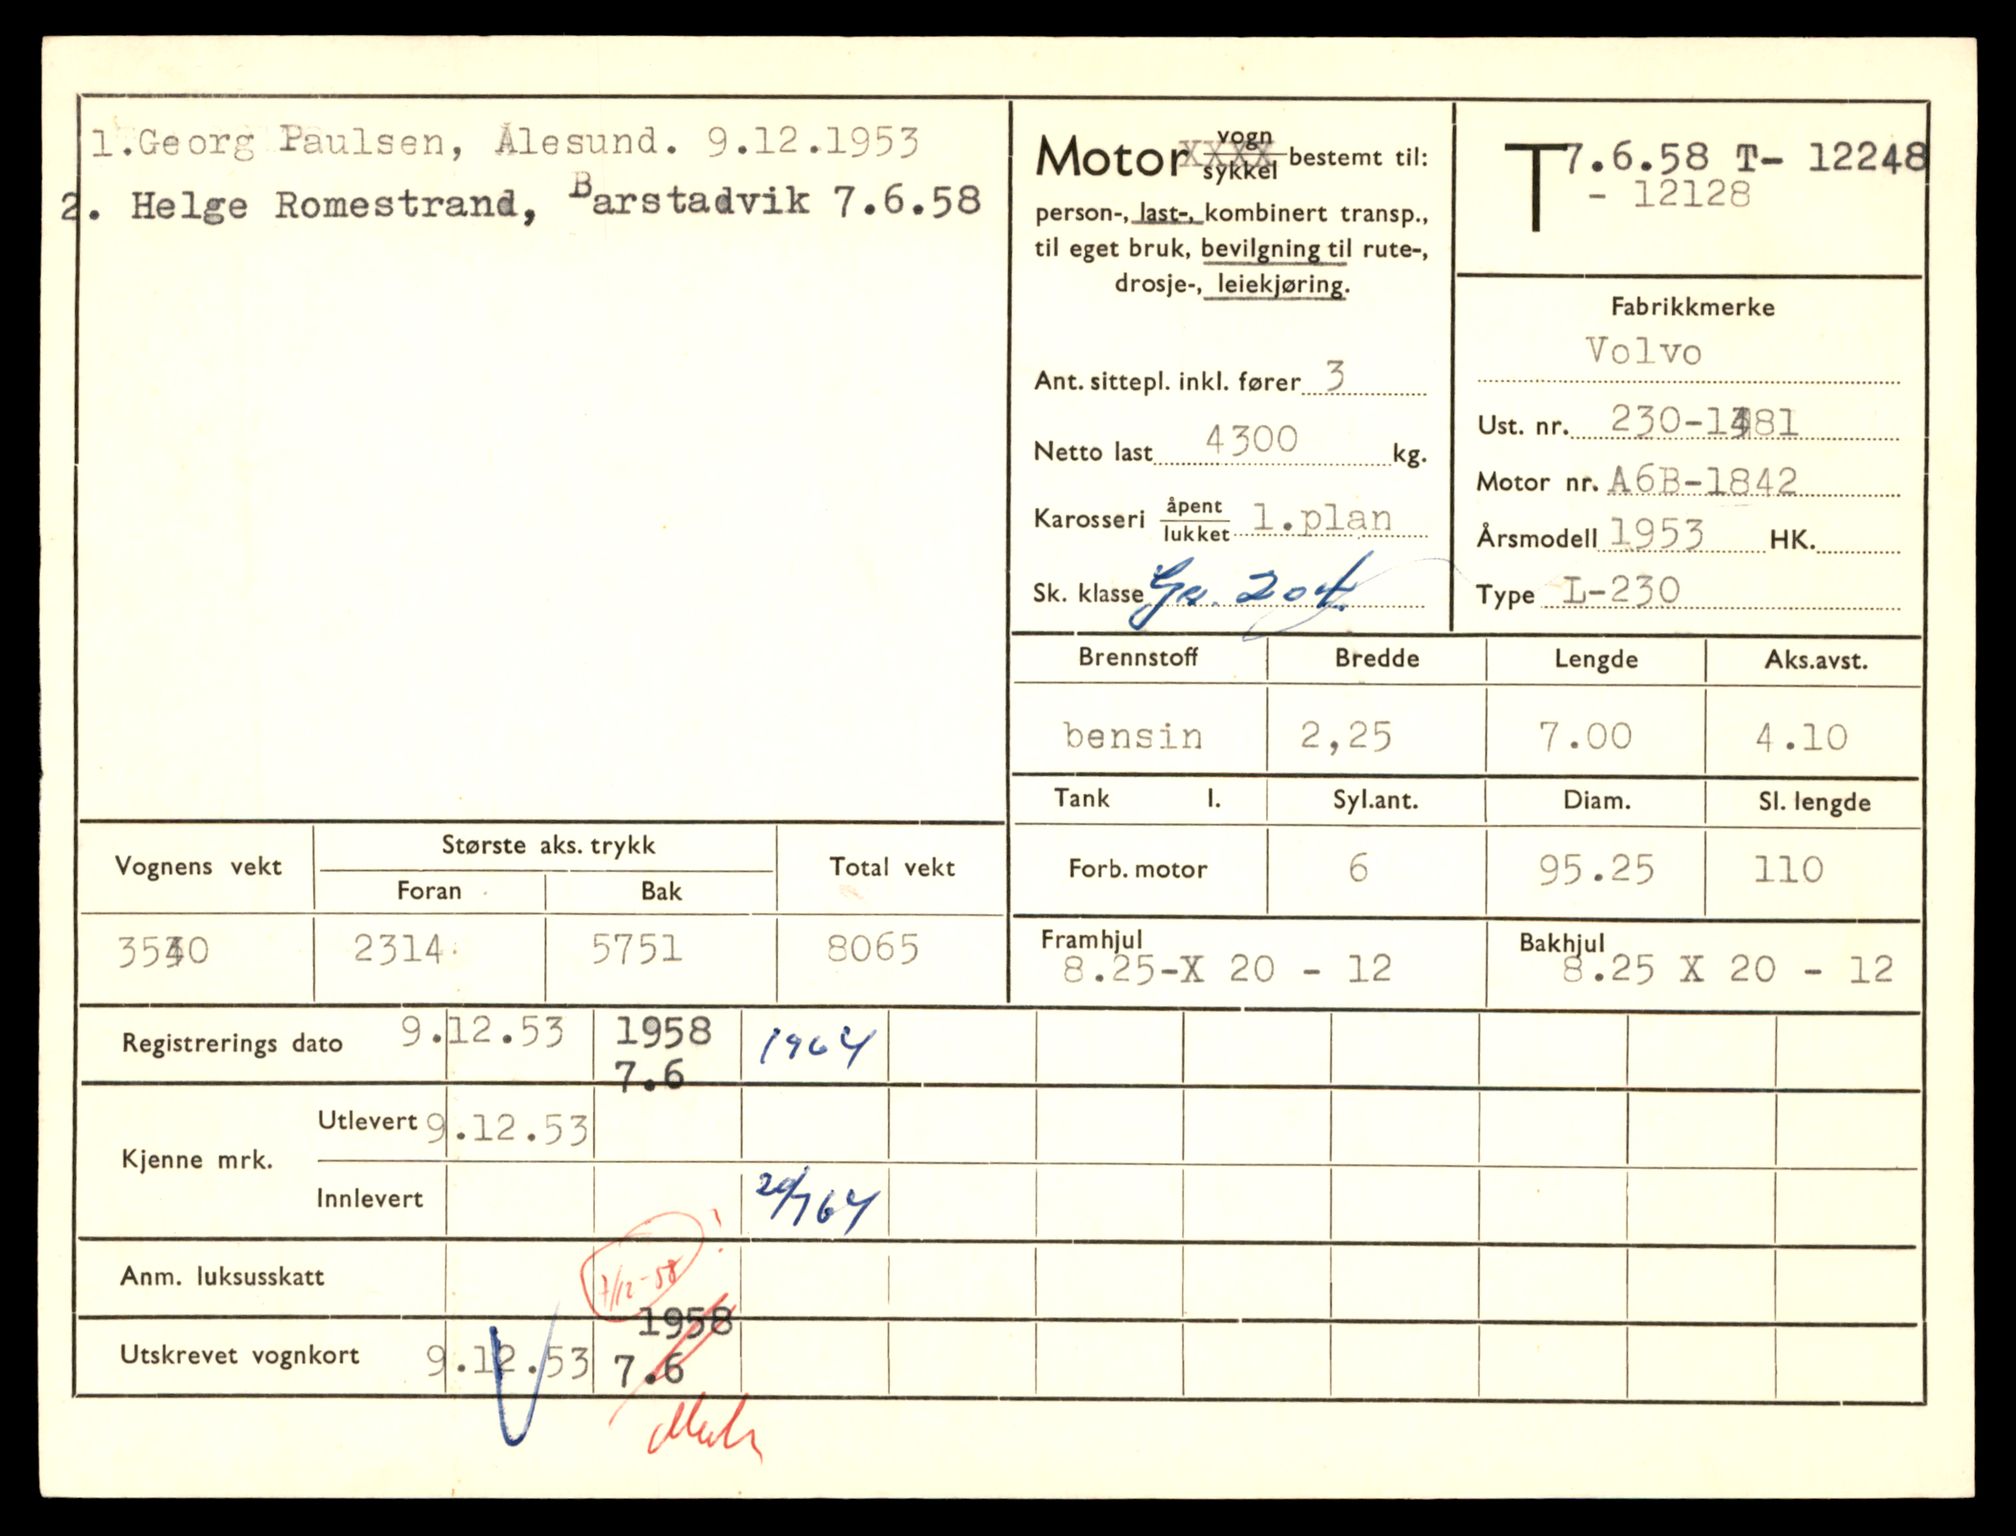 1. Georg Paulsen, Ålesund. 9.12.1953
2. Helge Romestrand, Barstadvik 7.6.58
Motor vogn
XXXX
sykkel bestemt til:
person-, last-, kombinert transp.,
til eget bruk, bevilgning til rute-,
drosje-, leiekjøring.
Ant. sittepl. inkl. fører 3
Netto last 4300 kg.
Karosseri åpent
lukket 1.plan
Sk. klasse
T 7.6.58 T- 12248
- 12128
Fabrikkmerke
Volvo
Ust. nr.
Motor nr. A6B-1842
Årsmodell 1953 HK.
Type L-230
Brennstoff Bredde Lengde Aks.avst.
bensin 2,25 7.00 4.10
Tank l. Syl.ant. Diam. Sl. lengde
Forb. motor 6 95.25 110
Framhjul Bakhjul
8.25-X 20 - 12 8.25 X 20 - 12
Vognens vekt Største aks. trykk Total vekt
Foran Bak
2314 5751 8065
Registrerings dato 9.12.53 1958 1964
7.6
Kjenne mrk. Utlevert 9.12.53
Innlevert
Anm. luksusskatt 7/12-58 !
1958
Utskrevet vognkort 9.12.53 7.6